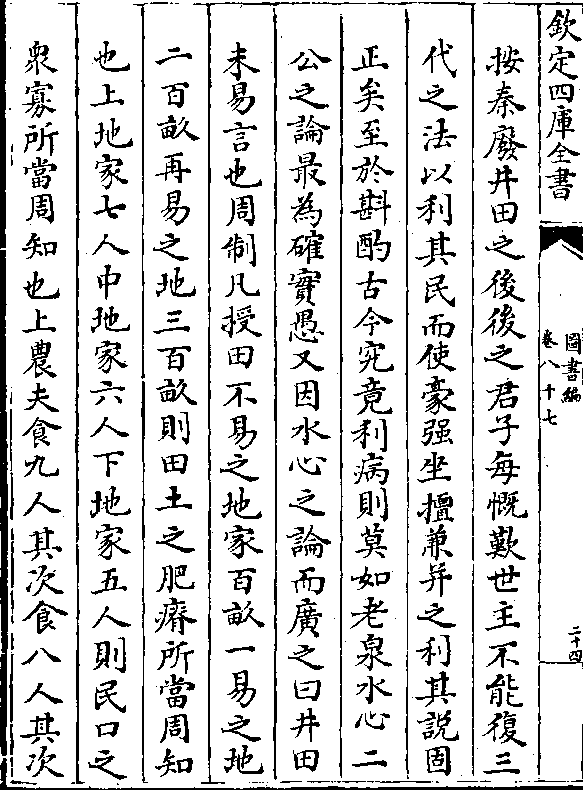 欽定四庫全書
圖書編
卷八十七
二十四
按秦廢井田之後後之君子每慨歎世主不能復三
代之法以利其民而使豪强坐擅兼并之利其說固
正矣至於斟酌古今究竟利病則莫如老泉水心二
公之論最為確實愚又因水心之論而廣之曰井田
未易言也周制凡授田不易之地家百畝一易之地
二百畝再易之地三百畝則田土之肥瘠所當周知
也上地家七人中地家六人下地家五人則民口之
衆寡所當周知也上農夫食九人其次食八人其次